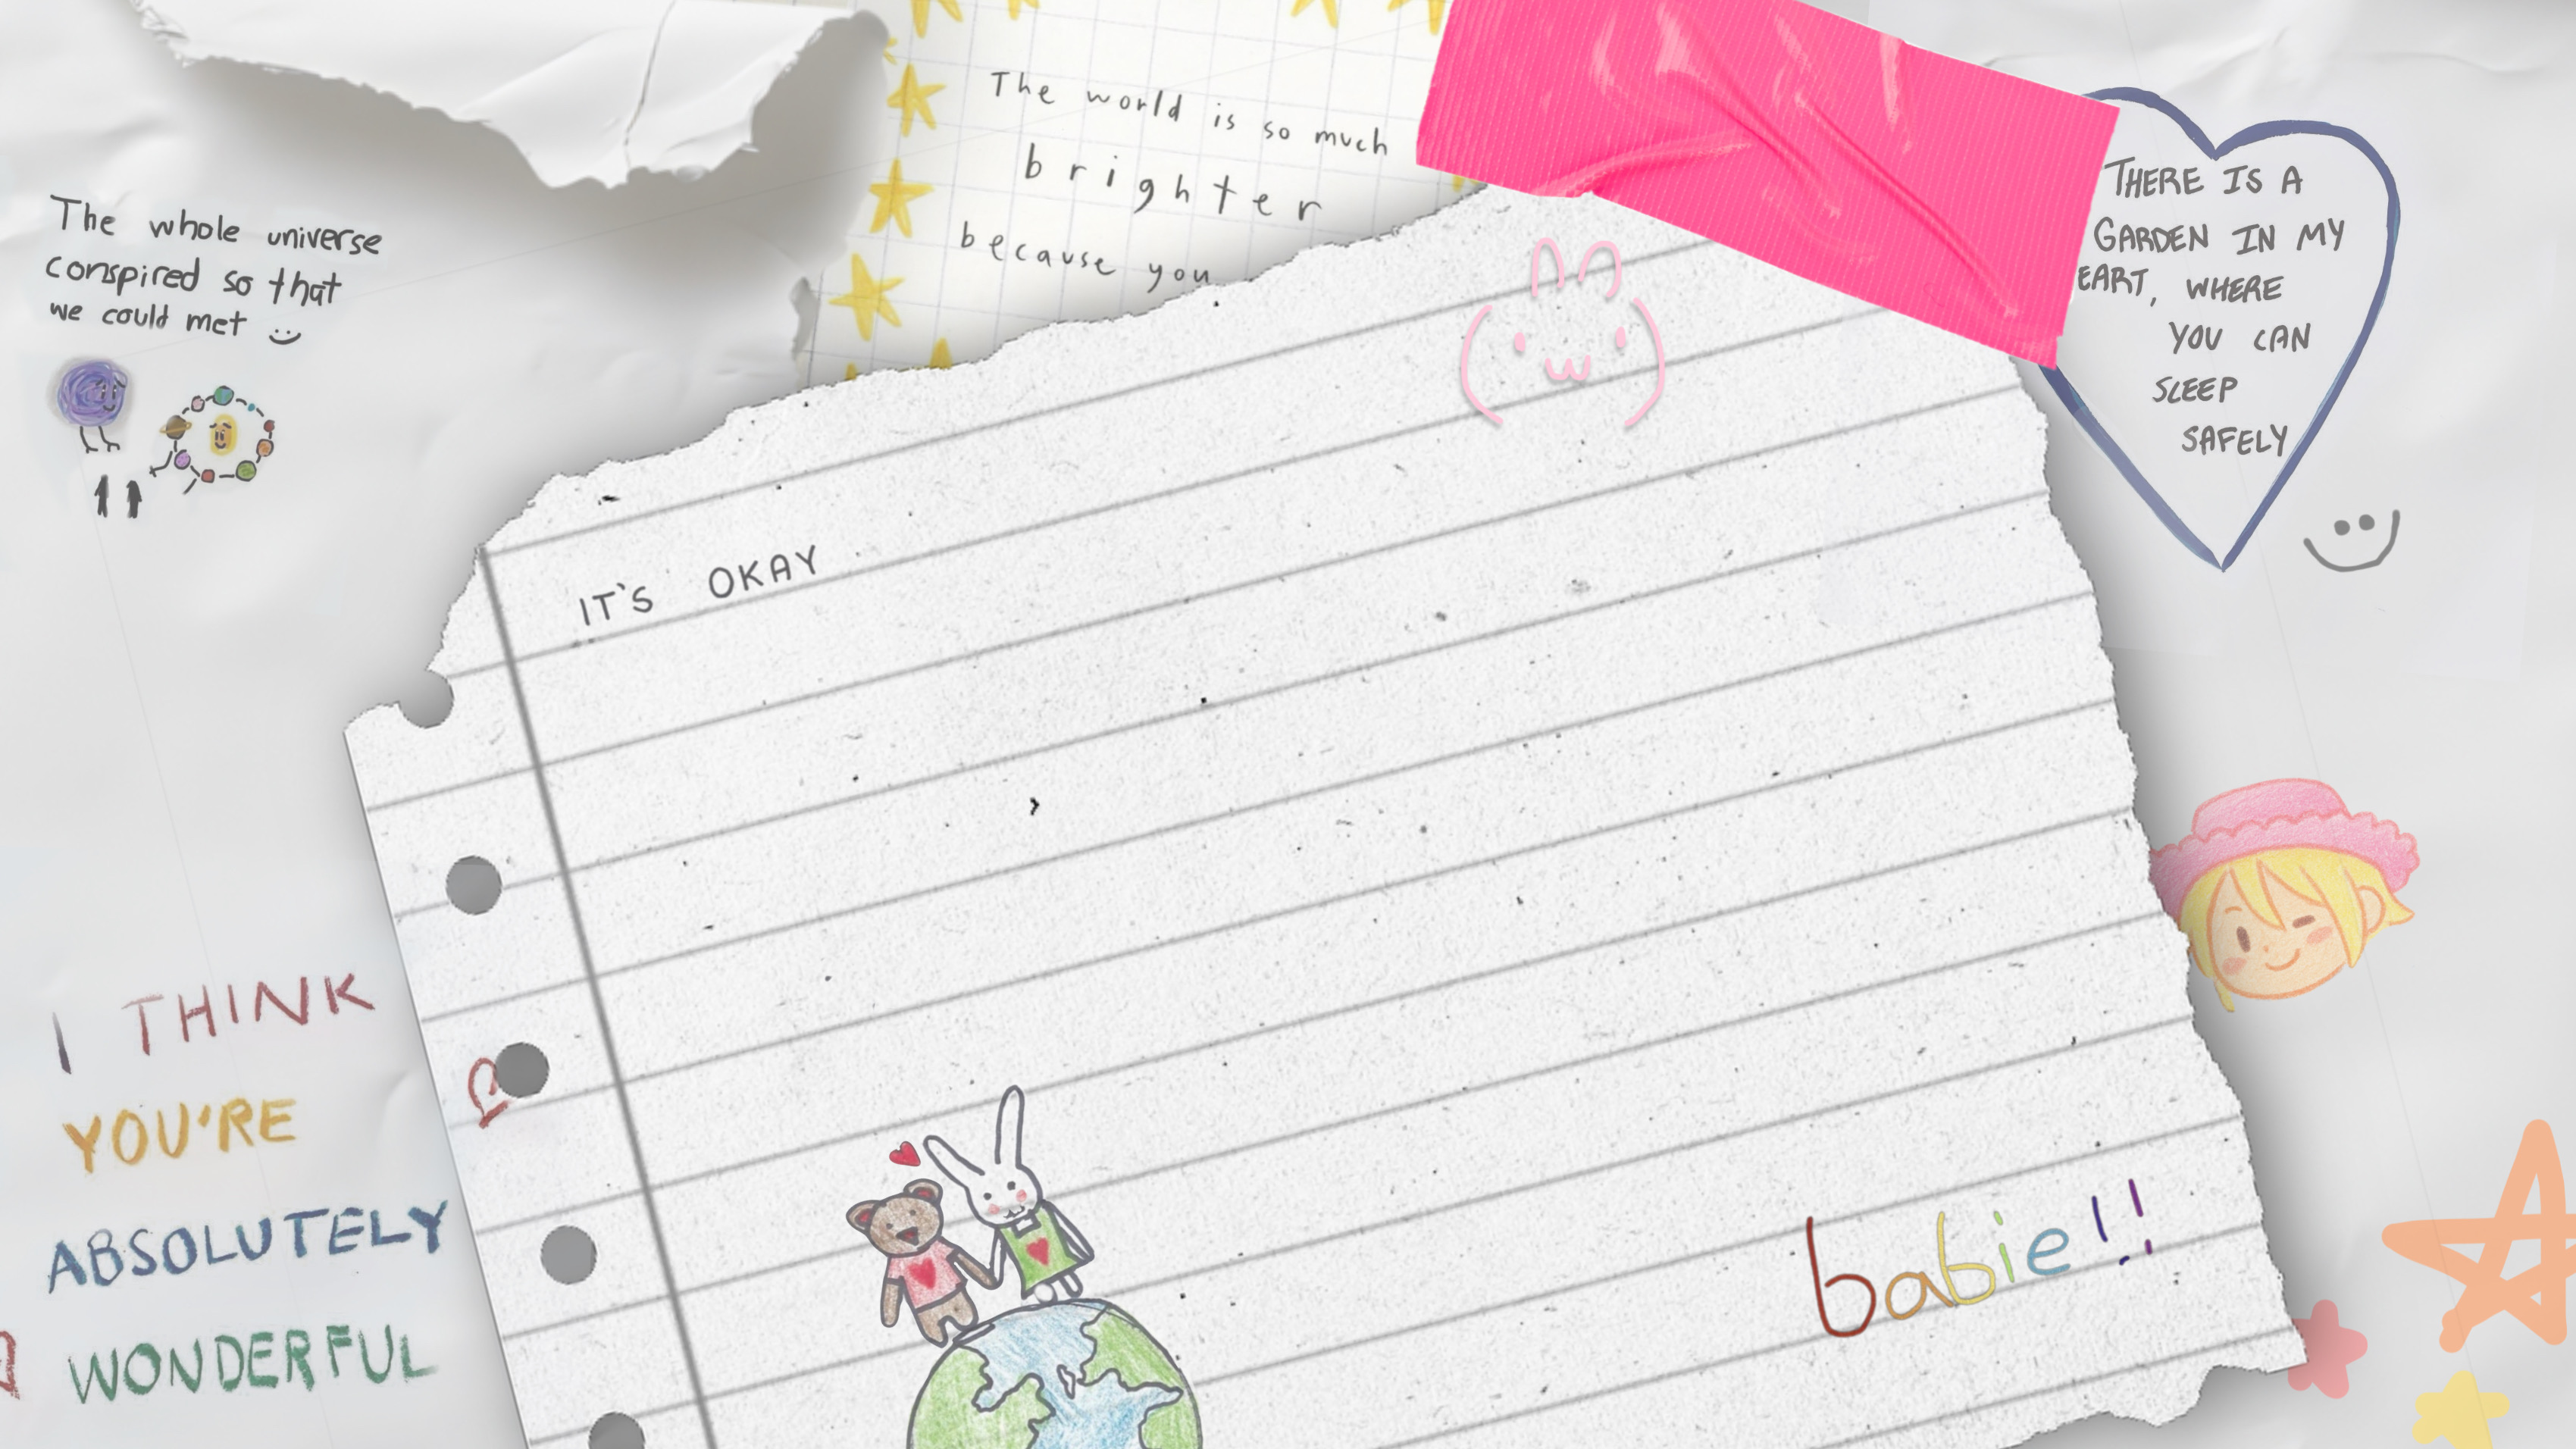 The whole universe
conspired so that
we could met
The world is so much
brighter
because you
THERE IS A
GARDEN IN MY
EART, WHERE
YOU CAN
SLEEP
SAFELY
IT'S OKAY
I THINK
YOU'RE
ABSOLUTELY
WONDERFUL
babie!!